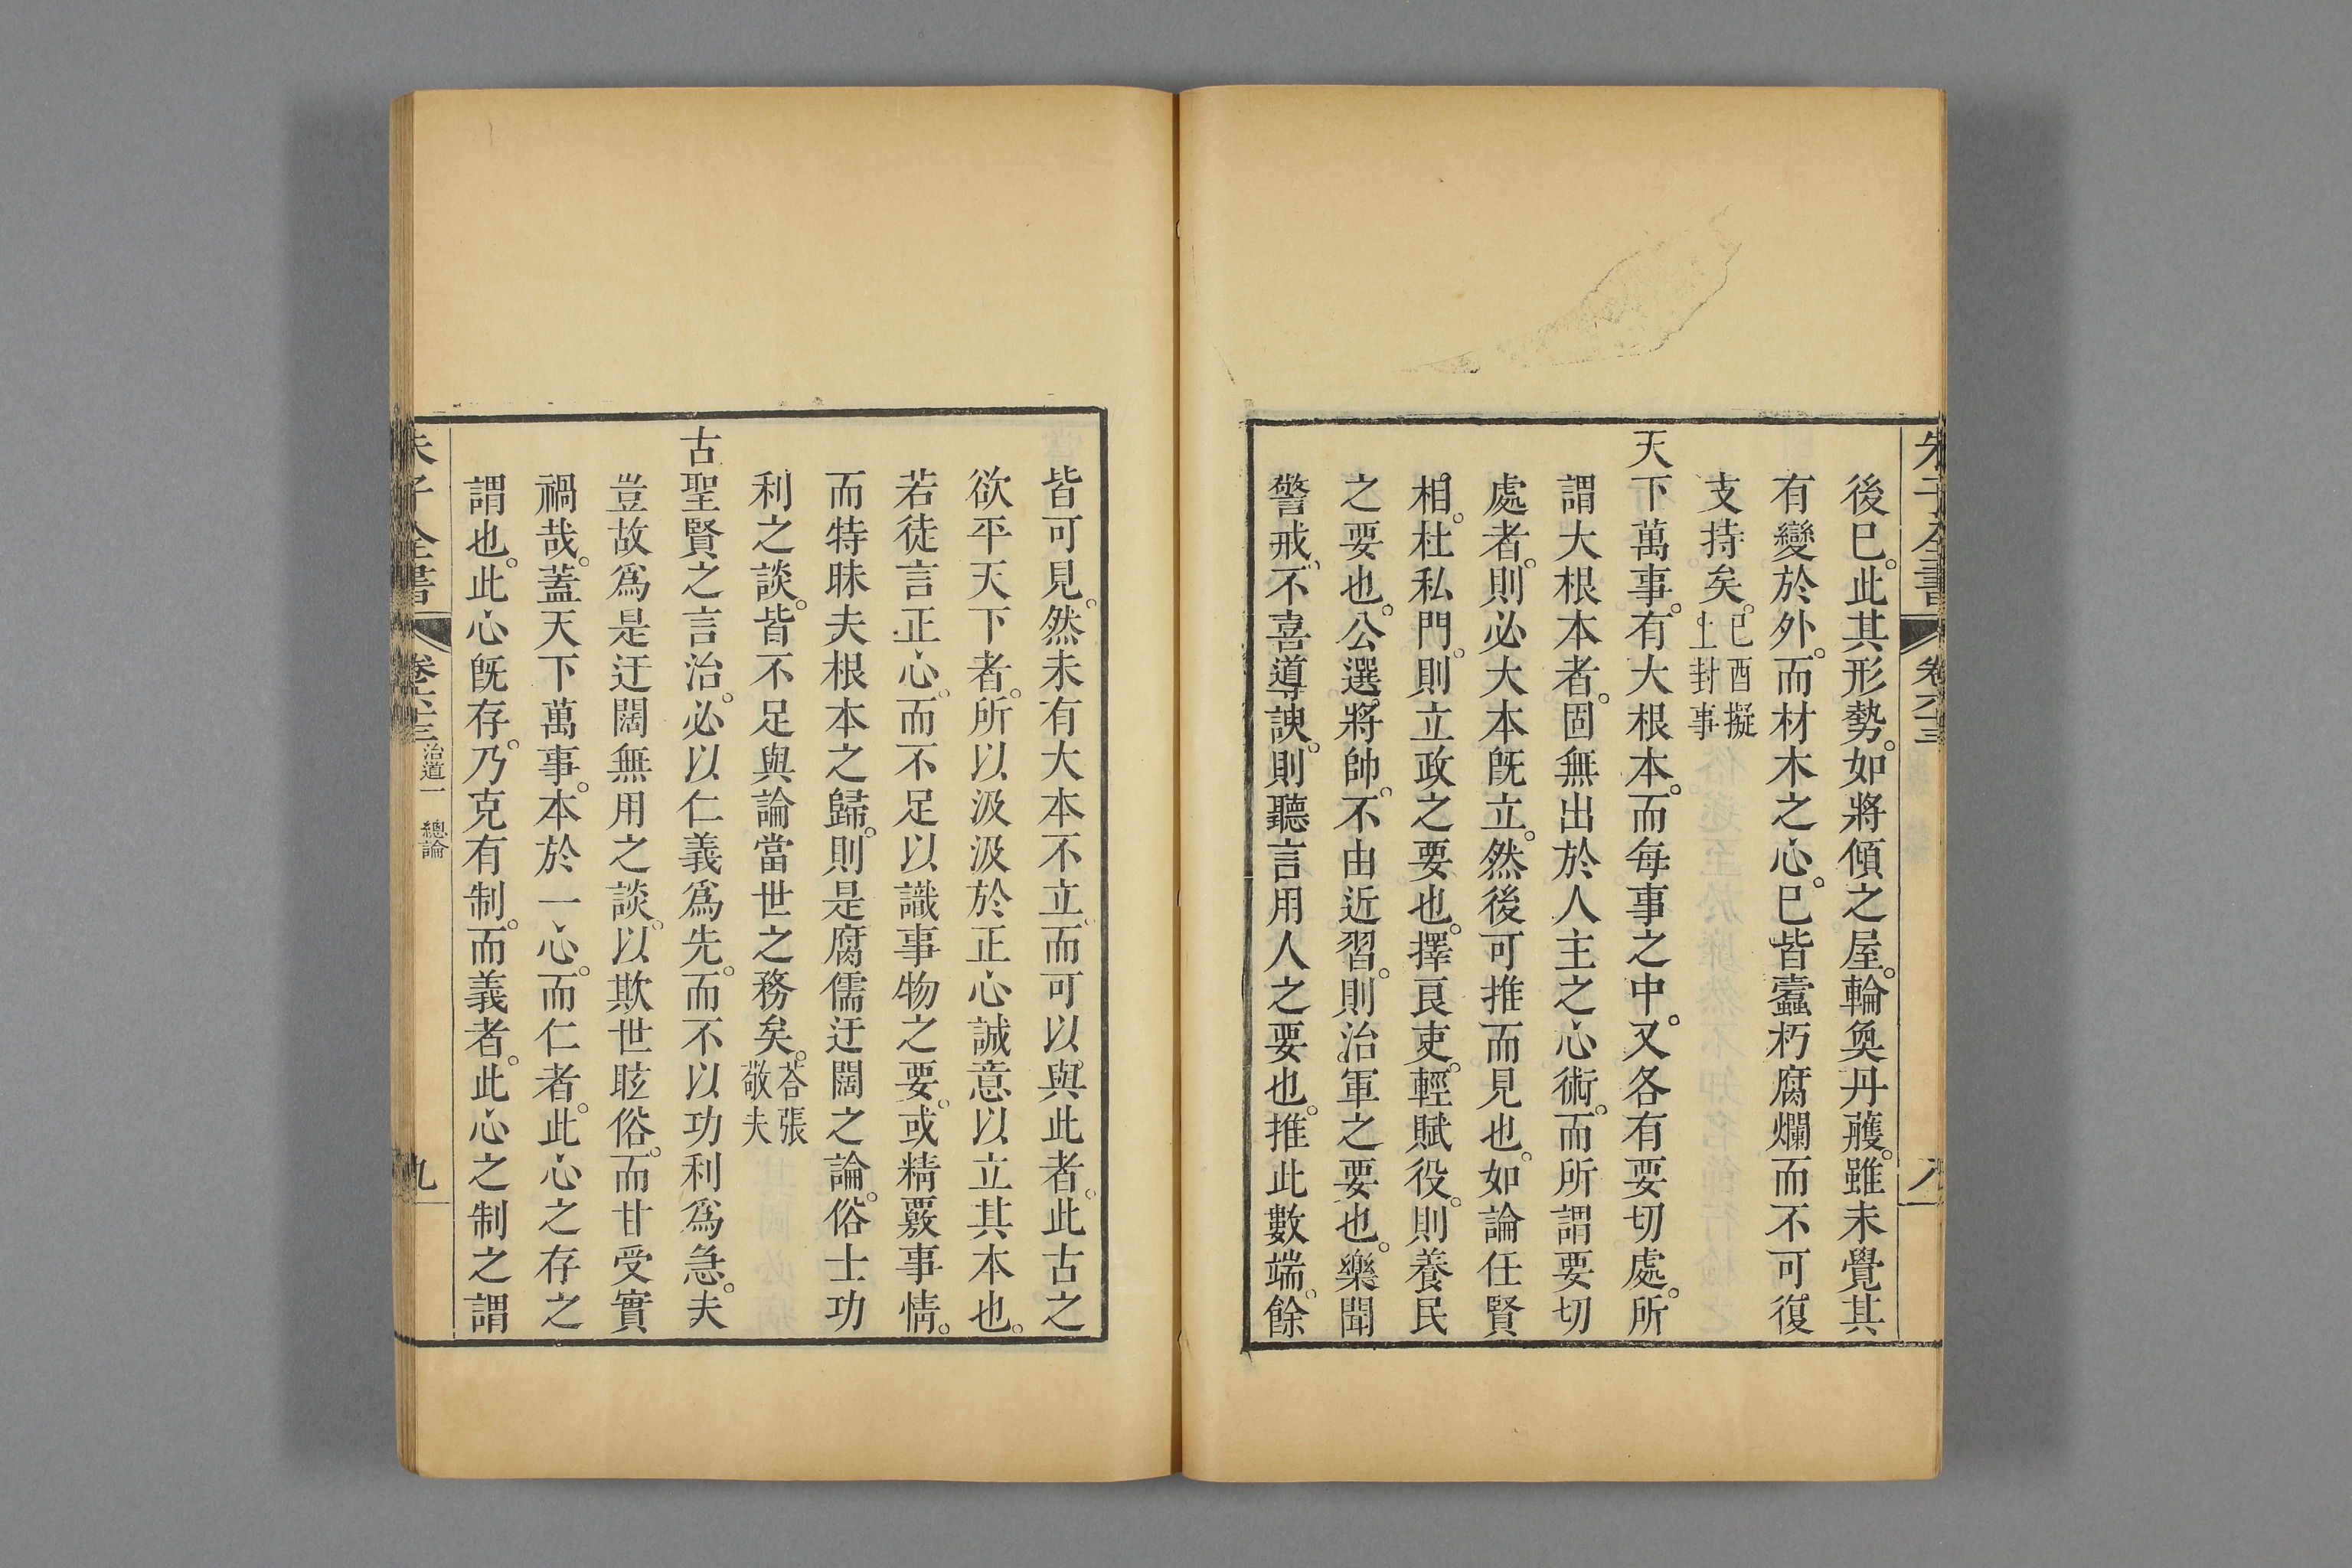 朱子全書 卷六十三 八
後已。此其形勢。如將傾之屋。輪奐丹雘。雖未覺其
有變於外。而材木之心。已皆蠹朽腐爛而不可復
支持矣。己酉擬上封事
天下萬事。有大根本。而每事之中。又各有要切處。所
謂大根本者。固無出於人主之心術。而所謂要切
處者。則必大本旣立。然後可推而見也。如論任賢
相。杜私門。則立政之要也。擇良吏。輕賦役。則養民
之要也。公選將帥。不由近習。則治軍之要也。樂聞
警戒。不喜導諛。則聽言用人之要也。推此數端。餘
皆可見。然未有大本不立。而可以與此者。此古之
欲平天下者。所以汲汲於正心誠意以立其本也。
若徒言正心。而不足以識事物之要。或精覈事情。
而特昧夫根本之歸。則是腐儒迂闊之論。俗士功
利之談。皆不足與論當世之務矣。荅張敬夫
古聖賢之言治。必以仁義爲先。而不以功利爲急。夫
豈故爲是迂闊無用之談。以欺世眩俗。而甘受實
禍哉。蓋天下萬事。本於一心。而仁者。此心之存之
謂也。此心旣存。乃克有制。而義者。此心之制之謂
朱子全書 卷六十三 治道一 總論 九